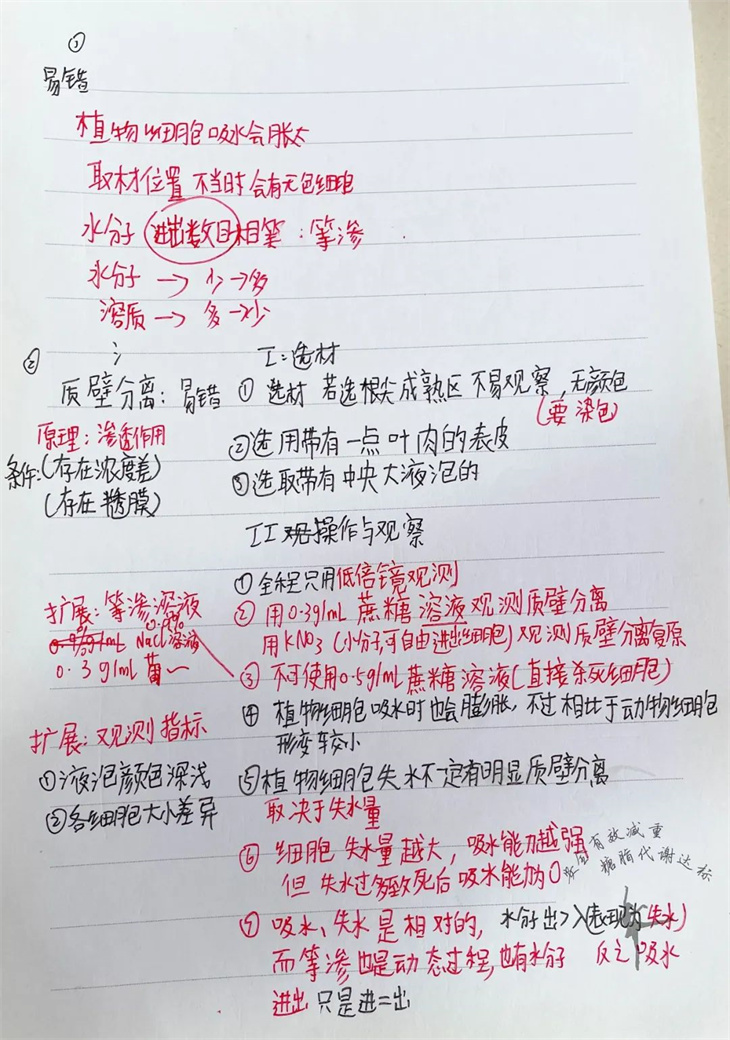 ①
易错
植物细胞吸水会胀大
取材位置不当时会有无色细胞
水分子 进出数目相等：等渗
水分子 → 少→多
溶质 → 多→少
②
质壁分离：易错
原理：渗透作用
条件：(存在浓度差)
(存在半透膜)
I：选材
① 选材 若选根尖成熟区 不易观察，无颜色
(要染色)
②选用带有一点叶肉的表皮
③选取带有中央大液泡的
II 操作与观察
①全程只用低倍镜观测
② 用0.3g/mL 蔗糖溶液观测质壁分离
用KNO₃ (小分子,可自由进出细胞) 观测质壁分离复原
③ 不可使用0.5g/mL蔗糖溶液(直接杀死细胞)
④ 植物细胞吸水时也会膨胀，不过相比于动物细胞
形变较小
⑤植物细胞失水不一定有明显质壁分离
取决于失水量
⑥ 细胞失水量越大，吸水能力越强
但失水过多致死后吸水能力为0
⑦ 吸水、失水是相对的，水分子出>入(表现为失水)
而等渗也是动态过程，也有水分子 反之吸水
进出 只是进=出
扩展：等渗溶液
0.9% NaCl溶液
0.3g/mL 蔗~
扩展：观测指标
①液泡颜色深浅
②各细胞大小差异
有效减重
糖脂代谢达标